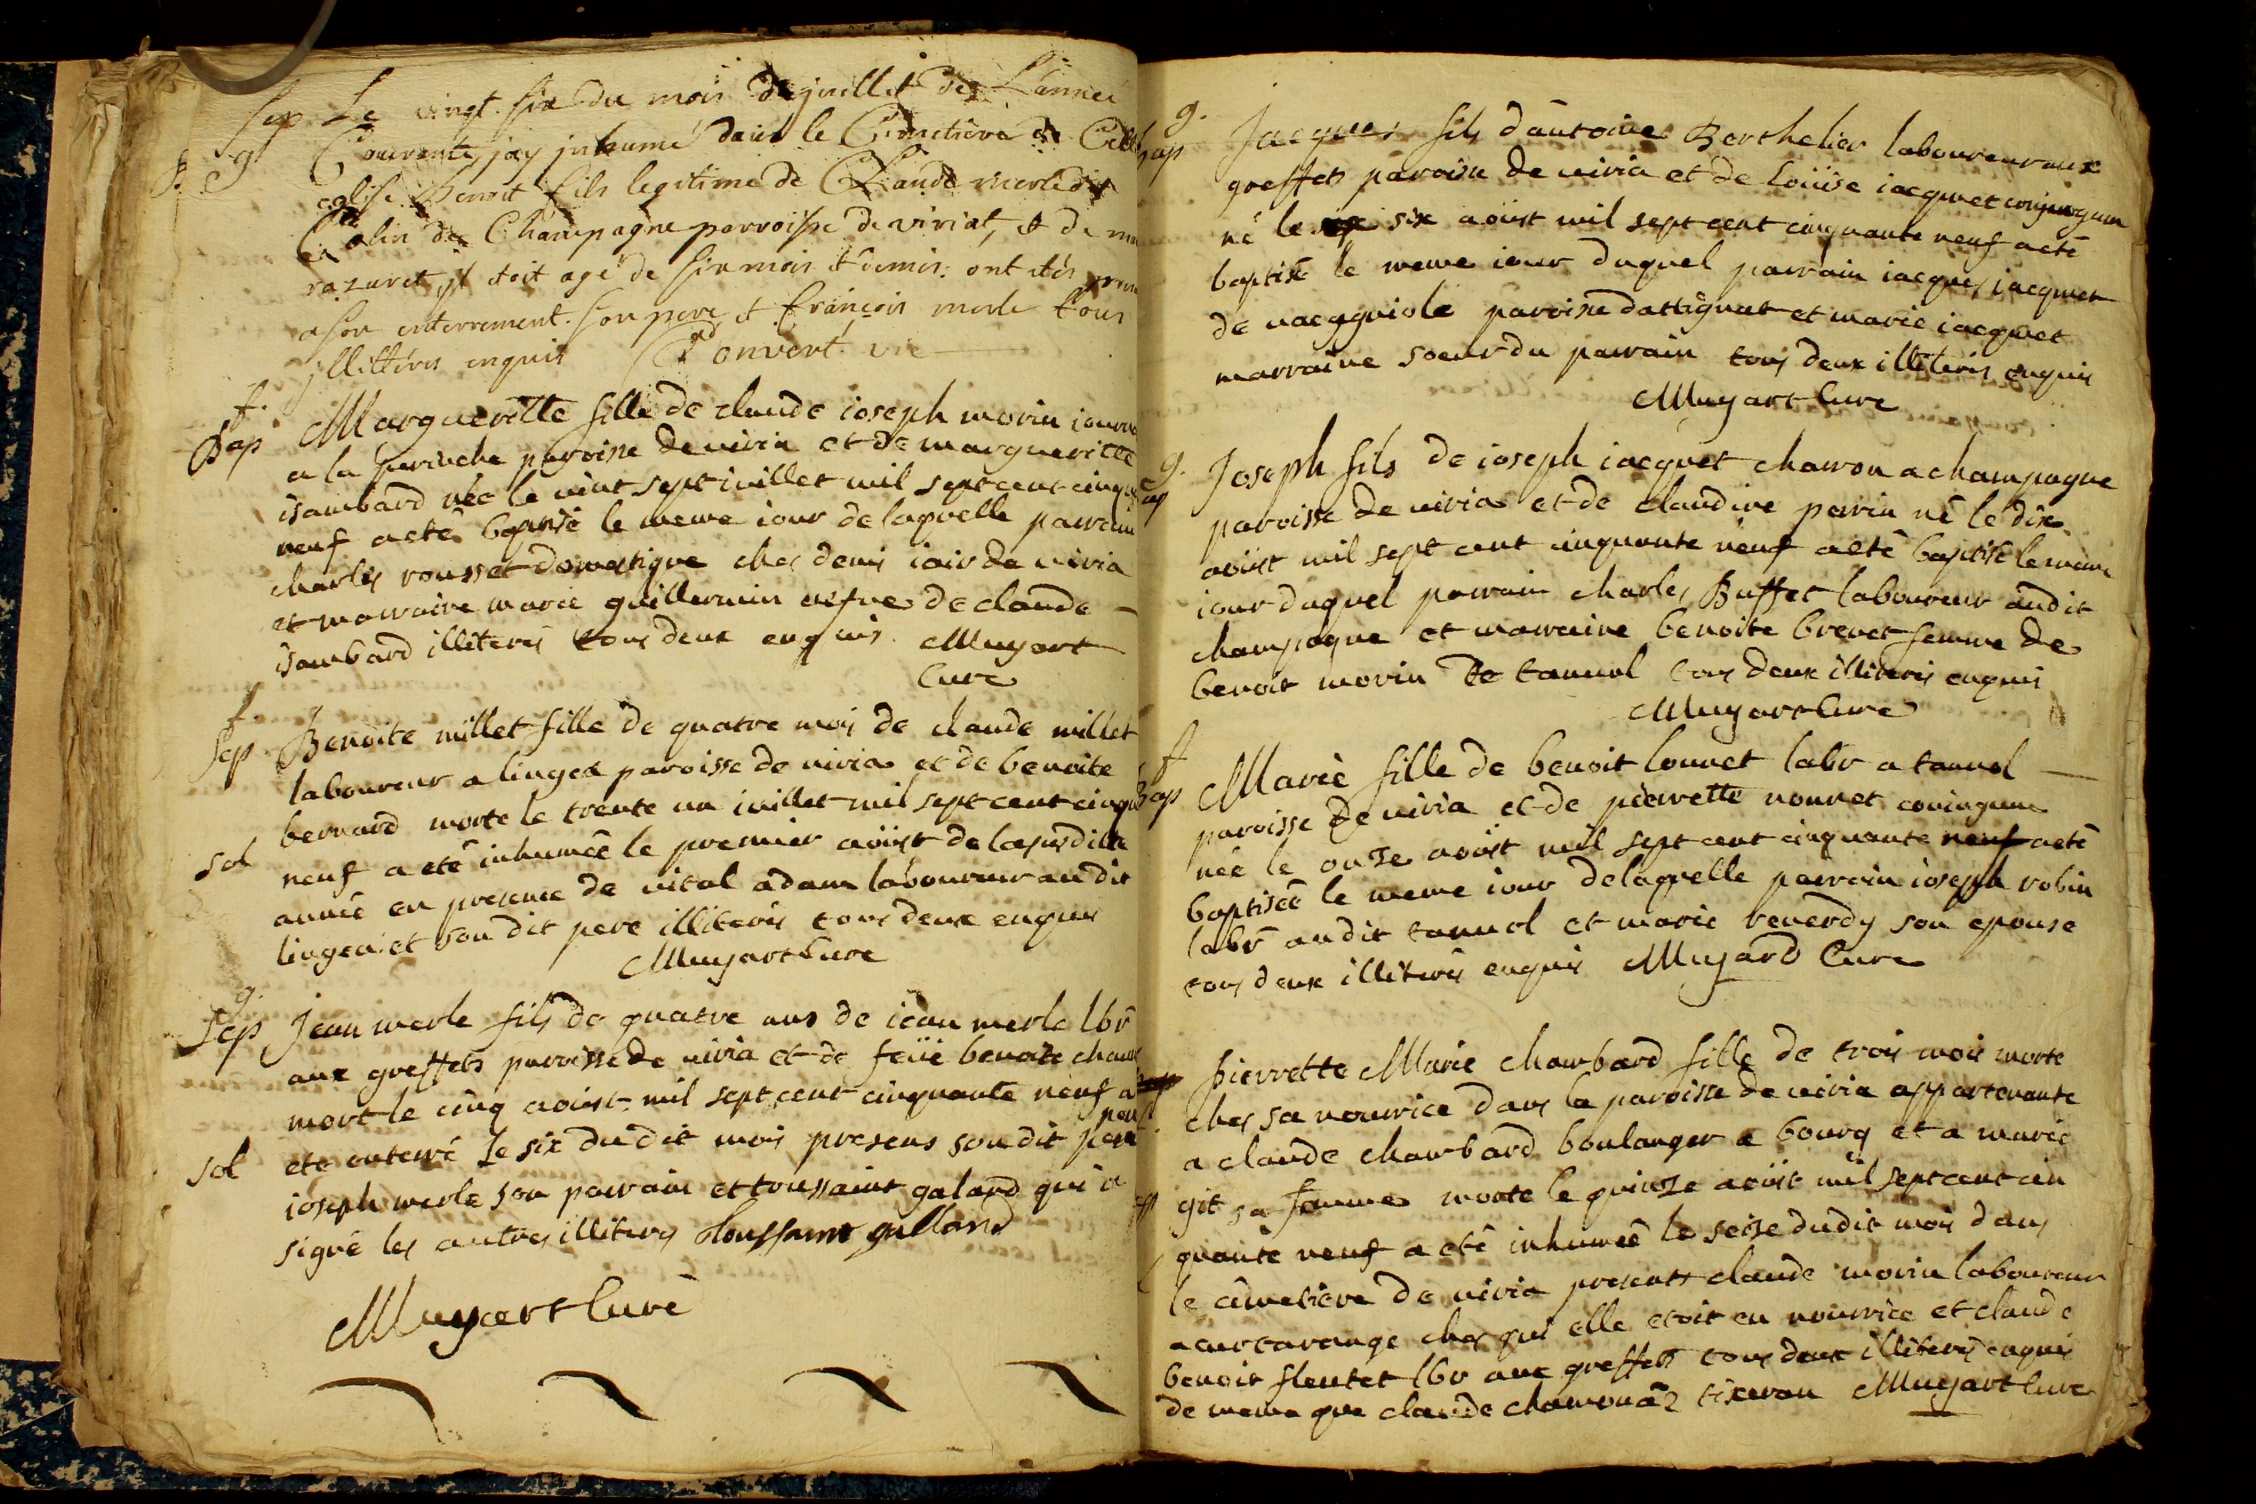 Sep Le vingt six du mois de juillet de L'année
g Courante, j'ay inhumé dans le Cimetière de Cette
eglise Benoit fils legitime de Claude merle dit
Colin de Champagne parroisse de viriat, et de
razuret, il etoit agé de six mois et demis: ont etés
a son enterrement. son pere et françois merle tous
illittérés enquis Convert vic
f.
Bap Margueritte fille de claude ioseph morin
a la paroisse de viria et de margueritte
isambard née le vint sept iuillet mil sept cent
neuf a eté baptisé le meme iour de laquelle parrain
charles rousset domestique ches denis de viria
et marraine marie guillermin vefve de claude
isambard illiteris tous deux enquis Muyart
Curé
f
Sep Benoite millet fille de quatre mois de claude millet
laboureur a lingea paroisse de viria et de benoite
bernard morte le trente un iuillet mil sept cent
sol neuf a eté inhumeé le premier aöust de la susditte
anneé en presence de vital adam laboureur au dit
lingea et son dit pere illiteris tous deux enquis
Muyart Curé
g.
Sep Jean merle fils de quatre ans de iean merle lbr
aux greffets paroisse de viria et de feüe benoite
mort le cinq aoust mil sept cent cinquante neuf a
sol eté enterré le six du dit mois presens son dit pere
ioseph merle son parrain et toussaint galard qui a
signé les autres illiteris toussaint galland
Muyart Curé
g.
Bap Jacques fils d'antoine Berthelier laboureur aux
greffets paroisse de viria et de Loüise iacquet coniugum
né le six aöust mil sept cent cinquante neuf a eté
baptisé le meme iour duquel parrain iacques iacquet
de paroisse dattignat et marie iacquet
marraine soeur du parrain tous deux illiteris enquis
Muyart Curé
g.
Bap Joseph fils de ioseph iacquet charron a champagne
paroisse de viria et de claudine perrin né le dix
aöust mil sept cent cinquante neuf a eté baptisé le meme
iour duquel parrain charles Buffet laboureur audit
champagne et marraine benoite brevet femme de
benoit morin de tannol tous deux illiteris enquis
Muyart Curé
f
Bap Marie fille de benoit louvet labr a tannol
paroisse de viria et de pierrette nonnet coniugum
née le onze aoüst mil sept cent cinquante neuf a eté
baptiseé le meme iour de laquelle parrain ioseph robin
labr audit tannol et marie reverdy son epouse
tous deux illiteris enquis Muyard Curé
pierrette Marie chambard fille de trois mois morte
ches sa nourrice dans la paroisse de viria appartenante
a claude chambard boulanger a bourg et a marie
git sa femme morte le quinze aoüst mil sept cent cin
quante neuf a eté inhumeé le seize dudit mois dans
le cimetière de viria presents claude morin laboureur
a curtarange ches qui elle etoit en nourrice et claude
benoit fleutet lbr aux greffets tous deux illiteris enquis
de meme que claude tixeran Muyart Curé